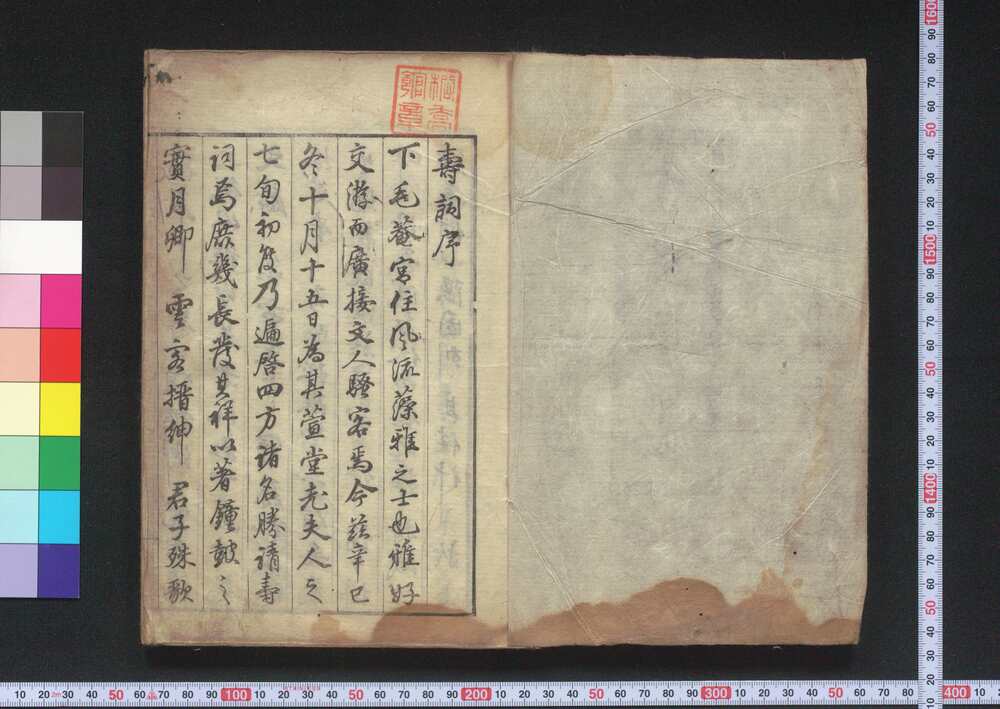 壽詞序
下毛菴宮住風流藻雅之士也雅好
交游而廣接文人騷客焉今茲辛巳
冬十月十五日為其萱堂老夫人之
七旬初度乃遍啓四方諸名勝請壽
詞焉庶幾長發其祥以著鐘鼓之
實月卿 雲客搢紳 君子殊歌